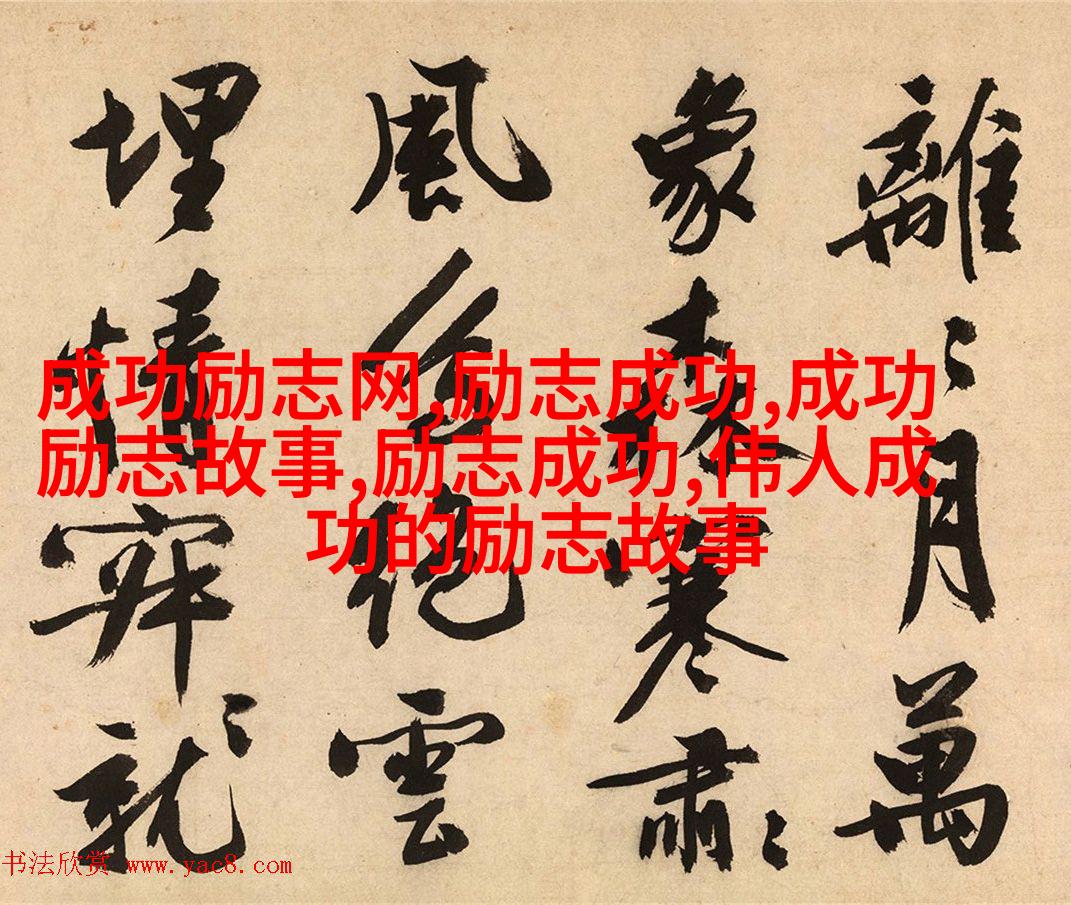 離〻月萬
象森寒肅〻
風絶雲
埋情
成功励志网,励志成功,成功
励志故事,励志成功,伟人成
功的励志故事
书法欣赏 www.yac8.com